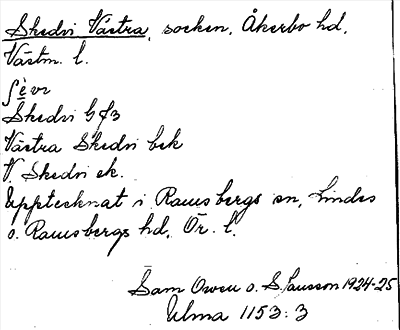 Skedvi Västra, socken, Åkerbo hd,
Västm. l.
ʃè̱vı
Skedvi
Västra Skedvi bck
V. Skedvi ek.
Upptecknat i Ramsbergs sn, Lindes
o. Ramsbergs hd, Ör. l.
Sam Owen o. S. Jansson 1924-25
Ulma 1153:3